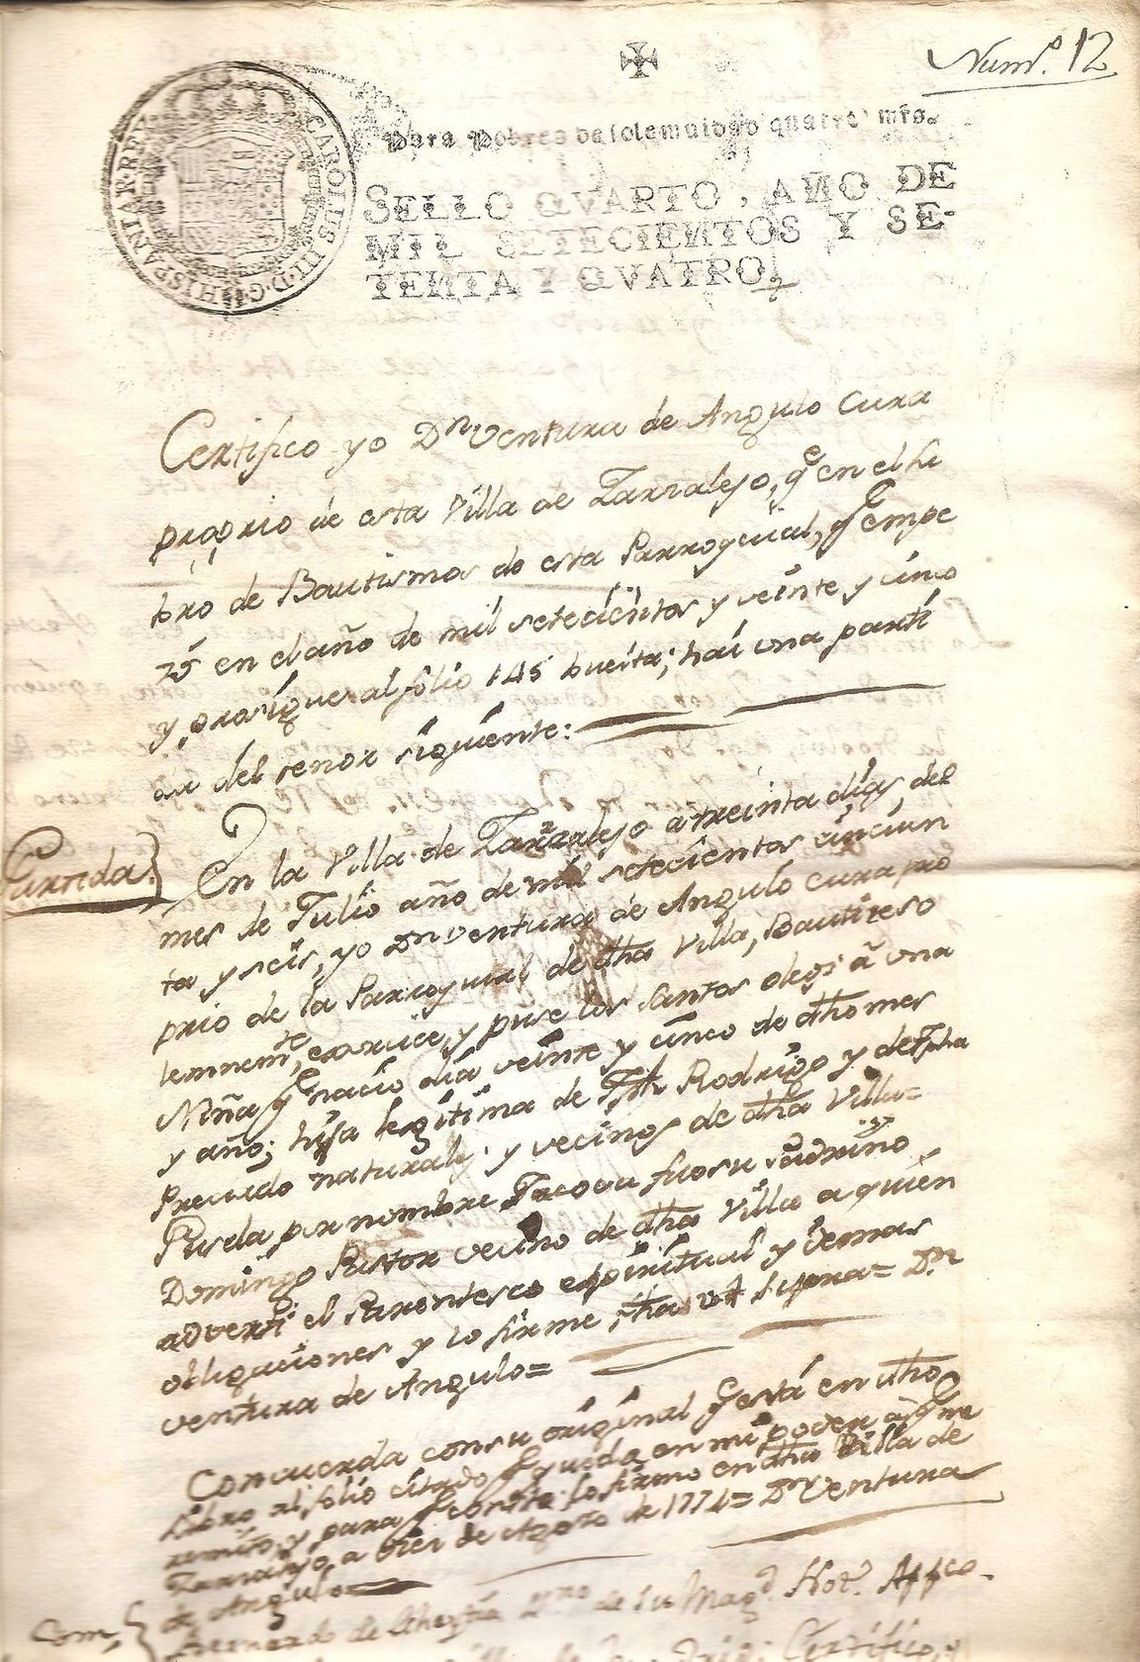 Numº. 12
CAROLUS III D G HISPANIAR REX
Para Pobres de solemnidad quatro mrs.
SELLO QVARTO, AÑO DE
MIL SETECIENTOS Y SE-
TENTA Y QVATRO.
Certifico yo Dn. Ventura de Angulo Cura
proprio de esta Villa de Zarzalejo, qe en el li
bro de Bautismos de esta Parroquial, qe empe
zó en el año de mil setecientos y veinte y cinco
y prosigue al folio 145 buelta; hai una parti
da del tenor siguiente:
Partida.
En la Villa de Zarzalejo a treinta dias del
mes de Julio año de mil setecientos cincuen
ta y seis, yo Dn Ventura de Angulo cura pro
prio de la Parroquial de dha Villa, Bautizé so
lemnemte, exorcicé, y puse los santos oleos à una
Niña qe nacio dia veinte y cinco de dho mes
y año; hija legitima de Rodrigo y de Jpha
Preciado naturales, y vecinos de dha Villa=
Pusela por nombre fue su Padrino
Domingo Pastor vecino de dha Villa a quien
adverti el Parentesco espiritual y demas
obligaciones y lo firme, fha ut supra= Dn
Ventura de Angulo=
Concuerda con su original qe está en dho
Libro al folio citado qe queda en mi poder à qe me
remito, y para qe conste lo firmo en dha Villa de
Zarzalejo a diez de Agosto de 1774= Dn Ventura
de Angulo=
Com
Bernardo de de su Magd. Notº. Appco.
Certifico, y